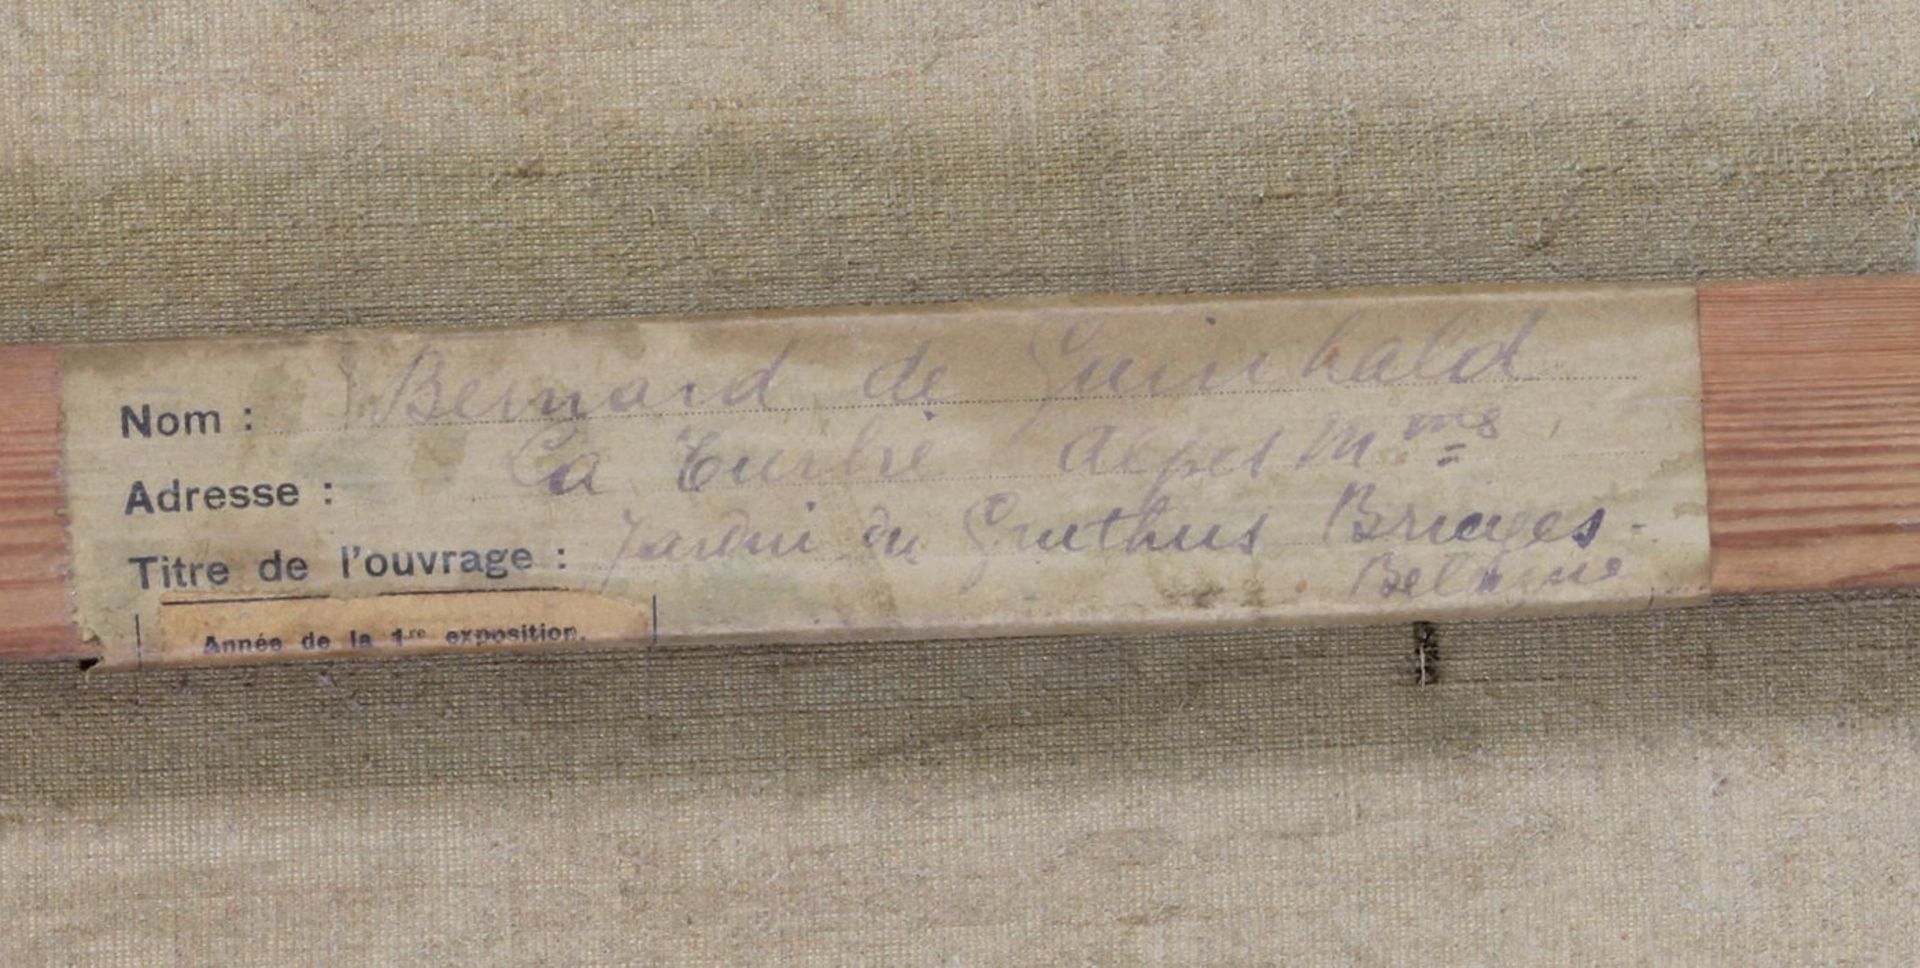 Nom : Bernard de Guinhald
Adresse : La Turbie Alpes M.mes
Titre de l'ouvrage : Jardin du Gruthus Bruges -
Belgique
Année de la 1re exposition.